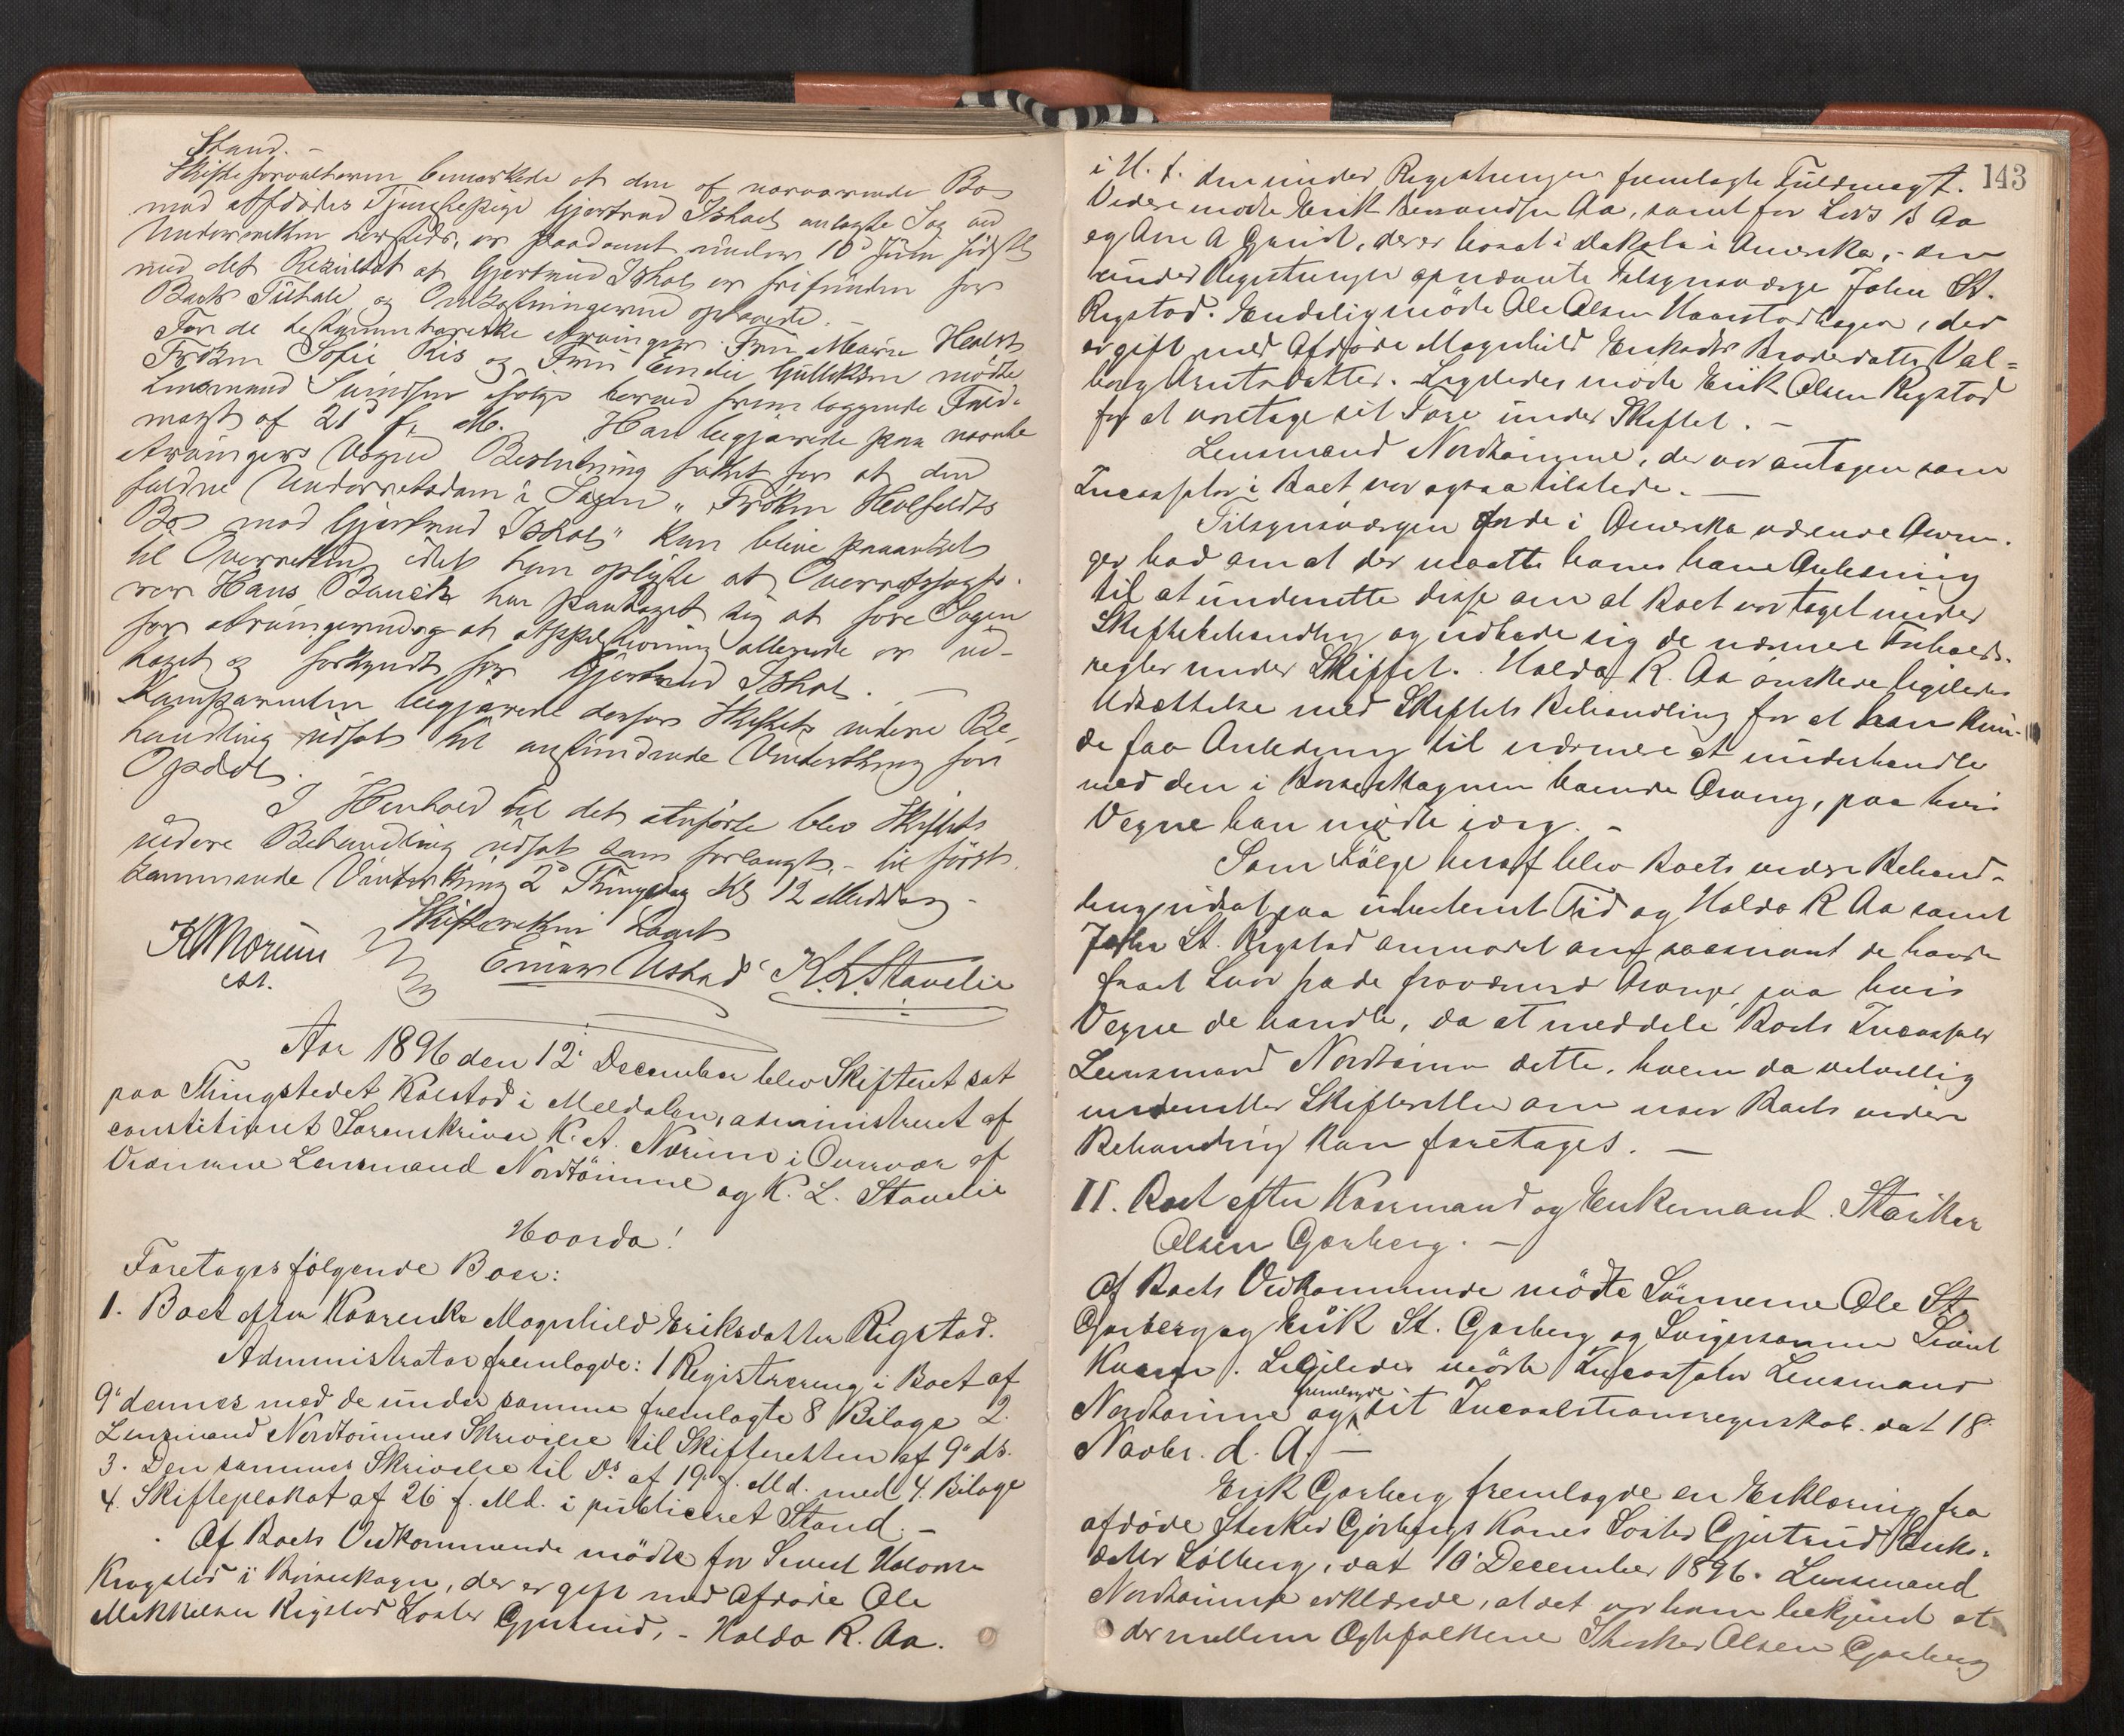 Stand. –
Skifteforvalteren bemærkede at den af nærværende Bo
mod Afdødes Tjenestepige Gjertrud Ishoel anlagte Sag ved
Underretten hersteds, er paadømt under 10d Juni sidstl.
med det Resultat at Gjertrud Ishoel er frifunden for
Boets Tiltale og Omkostningerne ophævede. –
For de testamentariske Arvinger Fru Marie
Frøken Sofie Ris og Fru Gulliksen mødte
Lensmand ifølge herved fremlæggende Fuld-
magt af 21d f. M. Han begjærede paa nævnte
Arvingers Vegne Beslutning fattet for at den
faldne Underretsdom i Sagen "Frøken
Bo mod Gjertrud Ishoel" kan blive paaanket
til Overretten, idet han oplyste at Overretssagfø-
rer Hans Bauck har paataget sig at føre Sagen
for Arvingerne og at Appelstevning allerede er ud-
taget og forkyndt for Gjertrud Ishoel. –
Komparenten begjærede derfor Skiftets videre Be-
handling udsat til anstundende Vinterthing for
Opdal.
I Henhold til det Anførte blev Skiftets
videre Behandling udsat som forlangt, – til først-
kommende Vinterthing 2d Thingdag Kl 12 Middag –
Skifteretten hævet
K A Nærum Einar K. L. Stavelie
cst.
Aar 1896 den 12' December blev Skifteret sat
paa Thingstedet Kalstad i Meldalen, administreret af
constitueret Sorenskriver K. A. Nærum i Overvær af
Vidnerne Lensmand Nordtømme og K. L. Stavelie
Hvorda!
Foretoges følgende Boer:
1. Boet efter Kaarenke Magnhild Eriksdatter Rigstad.
Administrator fremlagde: 1 Registrering i Boet af
9' dennes med de under samme fremlagte 8 Bilage 2.
Lensmand Nordtømmes Skrivelse til Skifteretten af 9' ds.
3. Den sammes Skrivelse til Ds. af 19' f. Md. med 4. Bilage
4. Skifteplakat af 26' f. Md. i publiceret Stand. –
Af Boets Vedkommende mødte for Sivert
Krogstad i Børseskogn, der er gift med Afdøde Ole
Mikkelsen Rigstad Søster Gjertrud, – Haldo R. Aa.
143
i H. t. den under Registreringen fremlagte Fuldmagt.
Videre mødte Erik Aa, samt for Lars B Aa
og Ane A der er bosat i Dakota i Amerika, – den
under Registreringen opnævnte Tilsynsværge John St.
Rigstad. Endelig mødte Ole Olsen Haarstadhagen, der
er gift med Afdøde Magnhild Eriksdtrs Broderdatter Val-
borg Arntsdatter. Ligeledes mødte Erik Olsen Rigstad
for at varetage sit Tarv under Skiftet. –
Lensmand Nordtømme, der var antagen som
Incassator i Boet var ogsaa tilstede. –
Tilsynsværgen for de i Amerika værende Arvin-
ger bad om at der maatte levnes ham Anledning
til at underrette disse om at Boet var taget under
Skiftebehandling og udbede sig de nærmere Forholds-
regler under Skiftet. Haldo R. Aa ønskede ligeledes
Udsættelse med Skiftets Behandling for at han kun-
de faa Anledning til nærmere at underhandle
med den i Børseskognen boende Arving, paa hvis
Vegne han mødte idag. –
Som Følge heraf blev Boets videre Behand-
ling udsat paa ubestemt Tid og Haldo R Aa samt
John St. Rigstad anmodet om, saasnart de havde
faaet Svar fra de fraværende Arvinger, paa hvis
Vegne de handle, da at meddele Boets Incassator
Lensmand Nordtømme dette, hvem da velvillig
underretter Skifteretten om naar Boets videre
Behandling kan foretages. –
II. Boet efter Kaarmand og Enkemand Størker
Olsen Gorberg. –
Af Boets Vedkommende mødte Sønnerne Ole St.
Gorberg og Erik St. Gorberg og Svigersønnen Sivert
Ligeledes mødte Incassator Lensmand
Nordtømme og fremlagde sit Incassationsregnskab dat 18'
Novbr. d. A. –
Erik Gorberg fremlagde en Erklæring fra
afdøde Størker Gorbergs Kones Søster Gjertrud Eriks-
datter Solberg, dat 10' December 1896. Lensmand
Nordtømme erklærede, at det var ham bekjendt at
der mellem Ægtefolkene Størker Olsen Gorberg